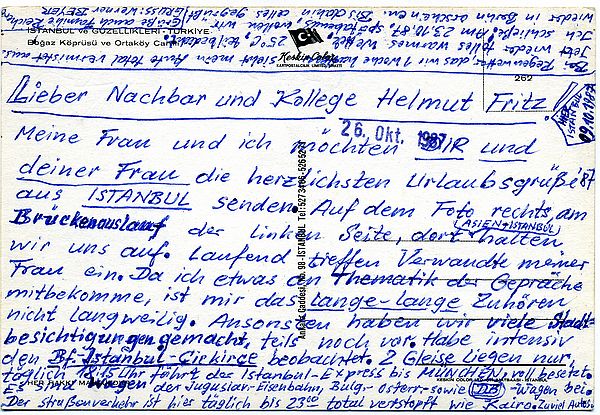 Lieber Nachbar und Kollege Helmut Fritz!
HIER ISTANBUL 09.10.1987
26. Okt. 1987
Meine Frau und ich möchten DIR und
deiner Frau die herzlichsten Urlaubsgrüße '87
aus ISTANBUL senden. Auf dem Foto rechts, am
Brückenauslauf der linken Seite, dort halten
(ASIEN-ISTANBUL)
wir uns auf. Laufend treffen Verwandte meiner
Frau ein. Da ich etwas den Thematik der Gespräche
mitbekomme, ist mir das lange-lange Zuhören
nicht langweilig. Ansonsten haben wir viele Stadt-
besichtigungen gemacht, teils noch vor. Habe intensiv
den Bf. Istanbul-Cirkirce beobachtet. 2 Gleise liegen nur,
täglich 18.15 Uhr fährt der Istanbul-Express bis MÜNCHEN, voll besetzt.
Es Wagen der Jugoslav-Eisenbahn, Bulg- österr.- sowie DB -wagen bei.
Der Straßenverkehr ist hier täglich bis 23⁰⁰ total verstopft wie Kairo. Zuviel Autos.
Bei Regenwetter, das wir 1 Woche hatten, sieht mein Auto total vermistet aus.
Jetzt wieder tolles warmes Wetter, 25°C, teils bedeckt.
Ich schließe. Am 23.10.87 spätabends wollen wir
wieder in Berlin ankommen. Bis dahin alles
Gruß Werner BEYER
İSTANBUL ve GÜZELLİKLERİ - TÜRKİYE
Boğaz Köprüsü ve Ortaköy Camii
Keskin Color
KARTPOSTALCILIK LİMİTED ŞİRKETİ
262
Ankara Caddesi No. 98 - İSTANBUL Tel:
HER HAKKI